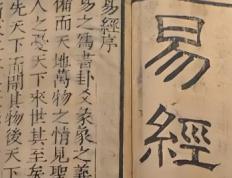 易經
易經序
易之爲書卦爻彖象之義
備而天地萬物之情見聖
人之憂天下來世其至矣
先天下而開其物後天下